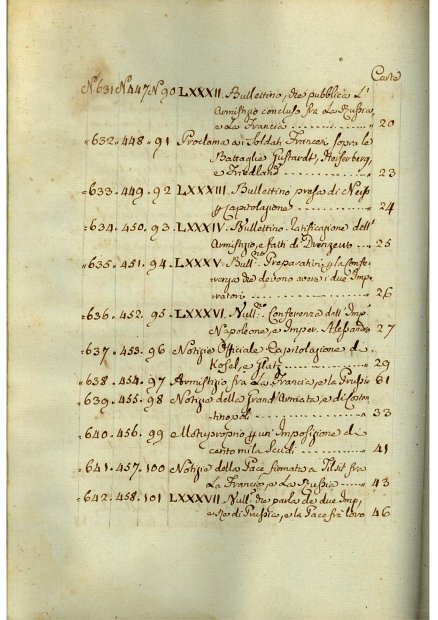 Carte
N.631 N.447 N.90 LXXXII. Bullettino, che pubblica L'
Armistizio concluso fra La Russia,
e La Francia ............ " 20
"632. 448. 91 Proclama ai Soldati Francesi sopra le
Battaglie Gustardt, Heilsberg,
e Friedland ............ " 23
"633. 449. 92 LXXXIII. Bullettino presa di Neiss
p capitolazione ............ " 24
"634. 450. 93 LXXXIV. Bullettino ratificazione dell'
Armistizio, e fatti di ... " 25
"635. 451. 94 LXXXV. Bull.no Preparativi p la confe=
renza che devono avere i due Impe
ratori ............ " 26
"636. 452. 95 LXXXVI. Bull.o Conferenza dell'Imp
Napoleone, e Imper. Alessandro 27
"637. 453. 96 Notizie Officiale Capitolazione di
Kosel, e Glatz ............ " 29
"638. 454. 97 Armistizio fra La Francia, e la Prussia 31
"639. 455. 98 Notizie della Grand'Armata e di Costan
tinopoli ............ " 33
"640. 456. 99 Motuproprio p un'Imposizione di
cento mila Scudi ............ " 41
"641. 457. 100 Notizie della Pace firmata a Tilsit fra
La Francia, e La Russia ...... " 43
"642. 458. 101 LXXXVII. Bull.o che parla de due Imp.,
e Re di Prussia, e la Pace fra loro 46